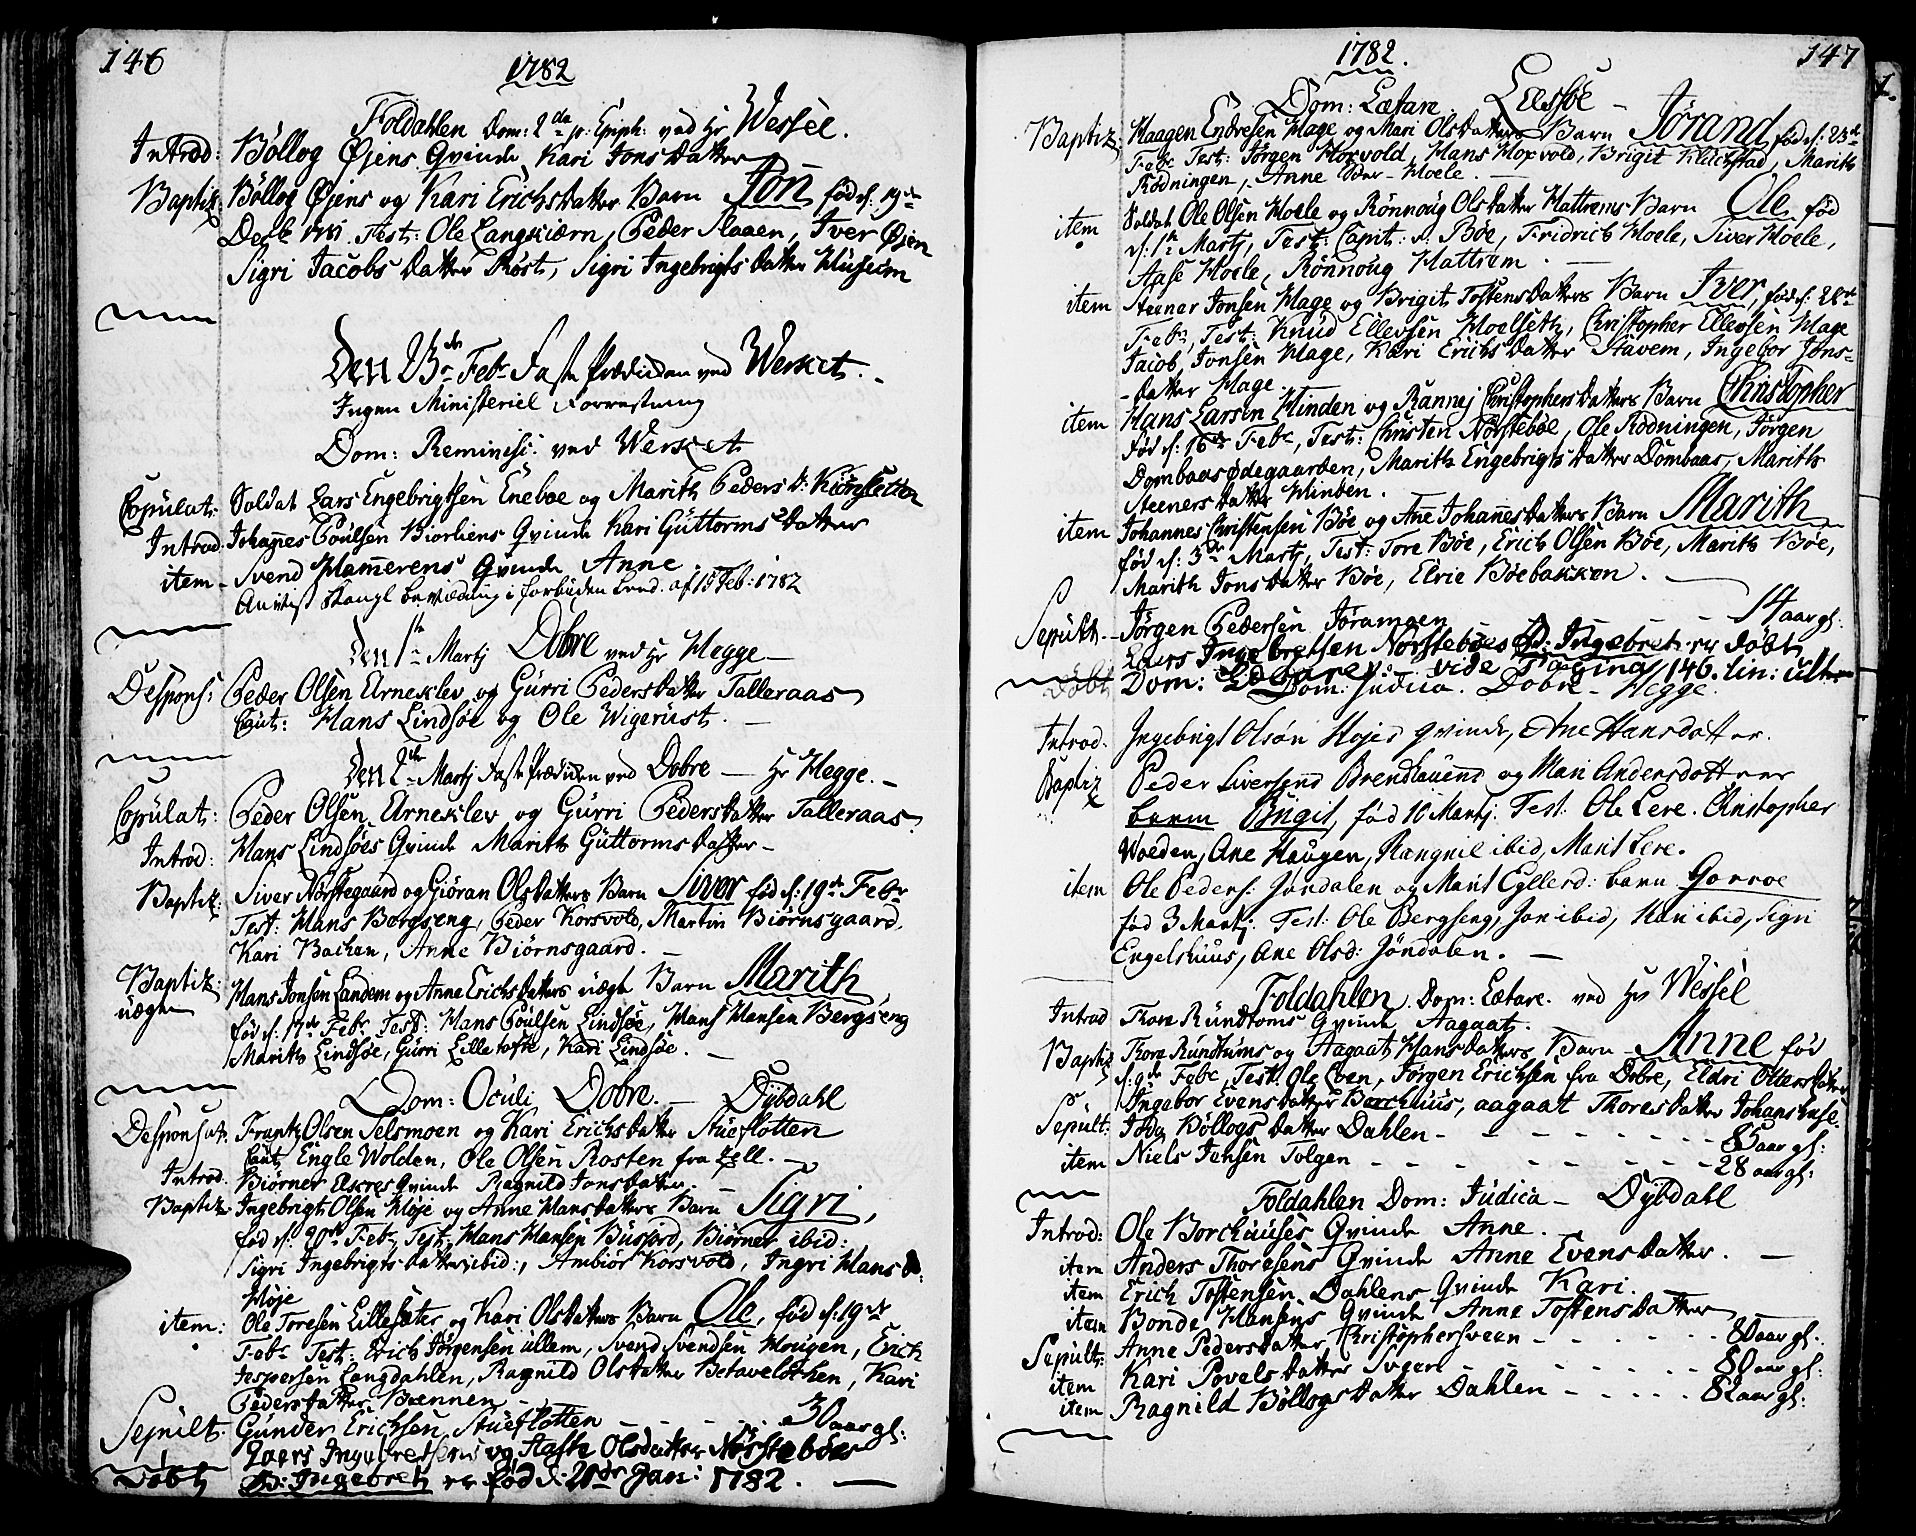 146
1782
Foldahlen Dom: 2da p: Epiph: ved Hr Wessel.
Introd: Böllog Øjens Qvinde Kari JonsDatter
Baptiz: Böllog Øjens og Kari ErichsDatter Barn Jon fød d: 19de
Test: Ole Langkiærn, Peder Slaaen, Iver Øjen
Sigri JacobsDatter Röst, Sigri IngebrigtsDatter Husum
Den 23de Febr FastePrædicken ved Werket.
Ingen Ministeriel Forretning
Dom: Reminisc: ved Werket
Copulat: Soldat Lars Engebrigtsen Eneboe og Marith Peders D: Kiörsletten
Introd: Johannes Poulsen Biorliens Qvinde Kari GuttormsDatter
item - Svend Hamerens Qvinde Anne.
af 15 Feb: 1782
Den 1te Martj Dobre ved Hr Hegge
Desponsi: Peder Olsen Arneklev og Gurri PedersDatter Talleraas
Caut: Hans Lindsöe og Ole Wigerust.
Den 2de Martj FastePrædicken ved Dobre - Hr Hegge.
Copulat: Peder Olsen Arneklev og Gurri PedersDatter Talleraas
Introd: Hans Lindsöes Qvinde Marith GuttormsDatter
Baptiz: Siver Nörstegaard og Giöran OlsDatters Barn Siver fød d: 19de Febr
Test: Hans Bergseng, Peder Korsvold, Martin Biörnsgaard,
Kari Bachen, Anne Biörnsgaard.
Baptiz: uægte Hans Jonsen Landem og Anne ErichsDatters uægte Barn Marith
fød d: 17de Febr Test: Hans Poulsen Lindsöe, Hans Hansen Bergseng
Marith Lindsöe, Gurri Lilletofte, Kari Lindsöe.
Dom: Oculi Dobre. - Dybdahl
Desponsat: Frantz Olsen Selsmoen og Kari ErichsDatter Stueflotten
Caut: Engle Wolden, Ole Olsen Rosten fra Lell.
Introd. Biörner Qvinde Ragnild JonsDatter.
Baptiz: Ingebrigt Olsen Höje og Anne HansDatters Barn Sigri,
fød d: 20de Febr, Test: Hans Hansen Busiord, Biörner ibid:
Sigri IngebrigtsDatter ibid:, Ambiör Korsvold, Ingri Hans D:
Höje
item: Ole Toresen Lillesæter og Kari OlsDatters Barn Ole, fød d: 19de
Febr Test: Erich Jørgensen ullem, Svend Svendsen Hougen, Erich
Jespersen Langdahlen, Ragnild OlsDatter Betavelökken, Kari
PedersDatter Brennen
Sepult: Gunder Erichsen Stueflotten - - - 30 aar gl:
Laers Ingebretsens og Aasthe Olsdatter Nörsteböes
Döbt B: Ingebret er fød d: 20de Jan: 1782.
147
1782.
Dom: Lætare. Lessöe
Baptiz Haagen Endresen Hage og Mari OlsDatters Barn Jörand fød d: 23de
Febr Test: Jörgen Hoxvold, Hans Hoxvold, Brigit Kluchstad, Marith
Rödningen, Anne Hoele.
item Soldat Ole Olsen Hoele og Rönnoug OlsDatter Hattrems Barn Ole fød
d: 1te Martj, Test: Capit: v. Böe, Fridrich Hoele, Siver Hoele,
Aase Hoele, Rönnoug Hattrem.
item Steener Jonsen Hage og Brigit TostensDatters Barn Iver, fød d: 22de
Febr, Test: Knud Ellevsen Hoelseth, Christopher Ellevsen Hage
Jacob Jonsen Hage, Kari ErichsDatter Stavem, Ingebor Jons-
-datter Hage.
item Hans Larsen Hinden og Rannej ChristophersDatters Barn Christopher
fød d: 16de Febr, Test: Christen Nörsteböe, Ole Rödningen, Jörgen
Dombaasödegaarden, Marith EngebrigtsDatter Dombaas, Marith
SteenersDatter Hinden.
item Johannes Christensen Böe og Ane JohanesDatters Barn Marith
fød d: 3de Martj, Test: Tore Böe, Erich Olsen Böe, Marith Böe,
Marith JonsDatter Böe, Elvie Böebakken.
Sepult: Jörgen Pedersen Jöramoen - - - 14 aar gl:
Laers Ingebretsen Norsteböes B: Ingebret er döbt
Döbt Dom: vide Pagina 146. lin: ult
Dom: Judica. Dobre - Hegge.
Introd. Ingebrigt Olsön Hojes qvinde, Ane Hansdatter.
Baptiz Peder Siversens Brendhaugens og Mari Andersdotters
barn Brigit, fød 10 Martj. Test: Ole Lere. Christopher
Wolden, Ane Haugen, Rangnil ibid, Marit Lere.
item Ole Peders: Jöndalen og Marit Eyllerd: barn Gorroe
fød 3 Martj. Test: Ole Bergseng, Jon ibid, Kari ibid, Sigri
Engelshuus, Ane Olsd: Jöndalen.
Foldahlen. Dom: Lætare. ved Hr Wessel
Introd Thore Rundtoms Qvinde Aagaat.
Baptiz Thore Rundtums og Aagaat HansDatters Barn Anne fød
d: 9de Febr, Test: Ole Eben, Jörgen Erichsen fra Dobre, Eldri OttersDatter
Ingebor EvensDatter Borchhuus, aagaat ThoresDatter Johanshuse.
Sepult: BöllogsDatter Dahlen - - - 85 aar gl:
item Niels Jensen Tolgen - - - 28 aar gl:
Foldahlen Dom: Judica - Dybdahl
Introd: Ole Borchhuses Qvinde Anne.
item Anders Thoresens Qvinde Anne EvensDatter.
item Erich Tostensen Dahlens Qvinde Kari.
item Bonde Hansens Qvinde Anne TostensDatter
Sepult: Anne PedersDatter Christophersveen - - - 80 aar gl:
item Kari PovelsDatter - - - 80 aar gl:
item Ragnild BöllogsDatter Dahlen - - - 82 aar gl: